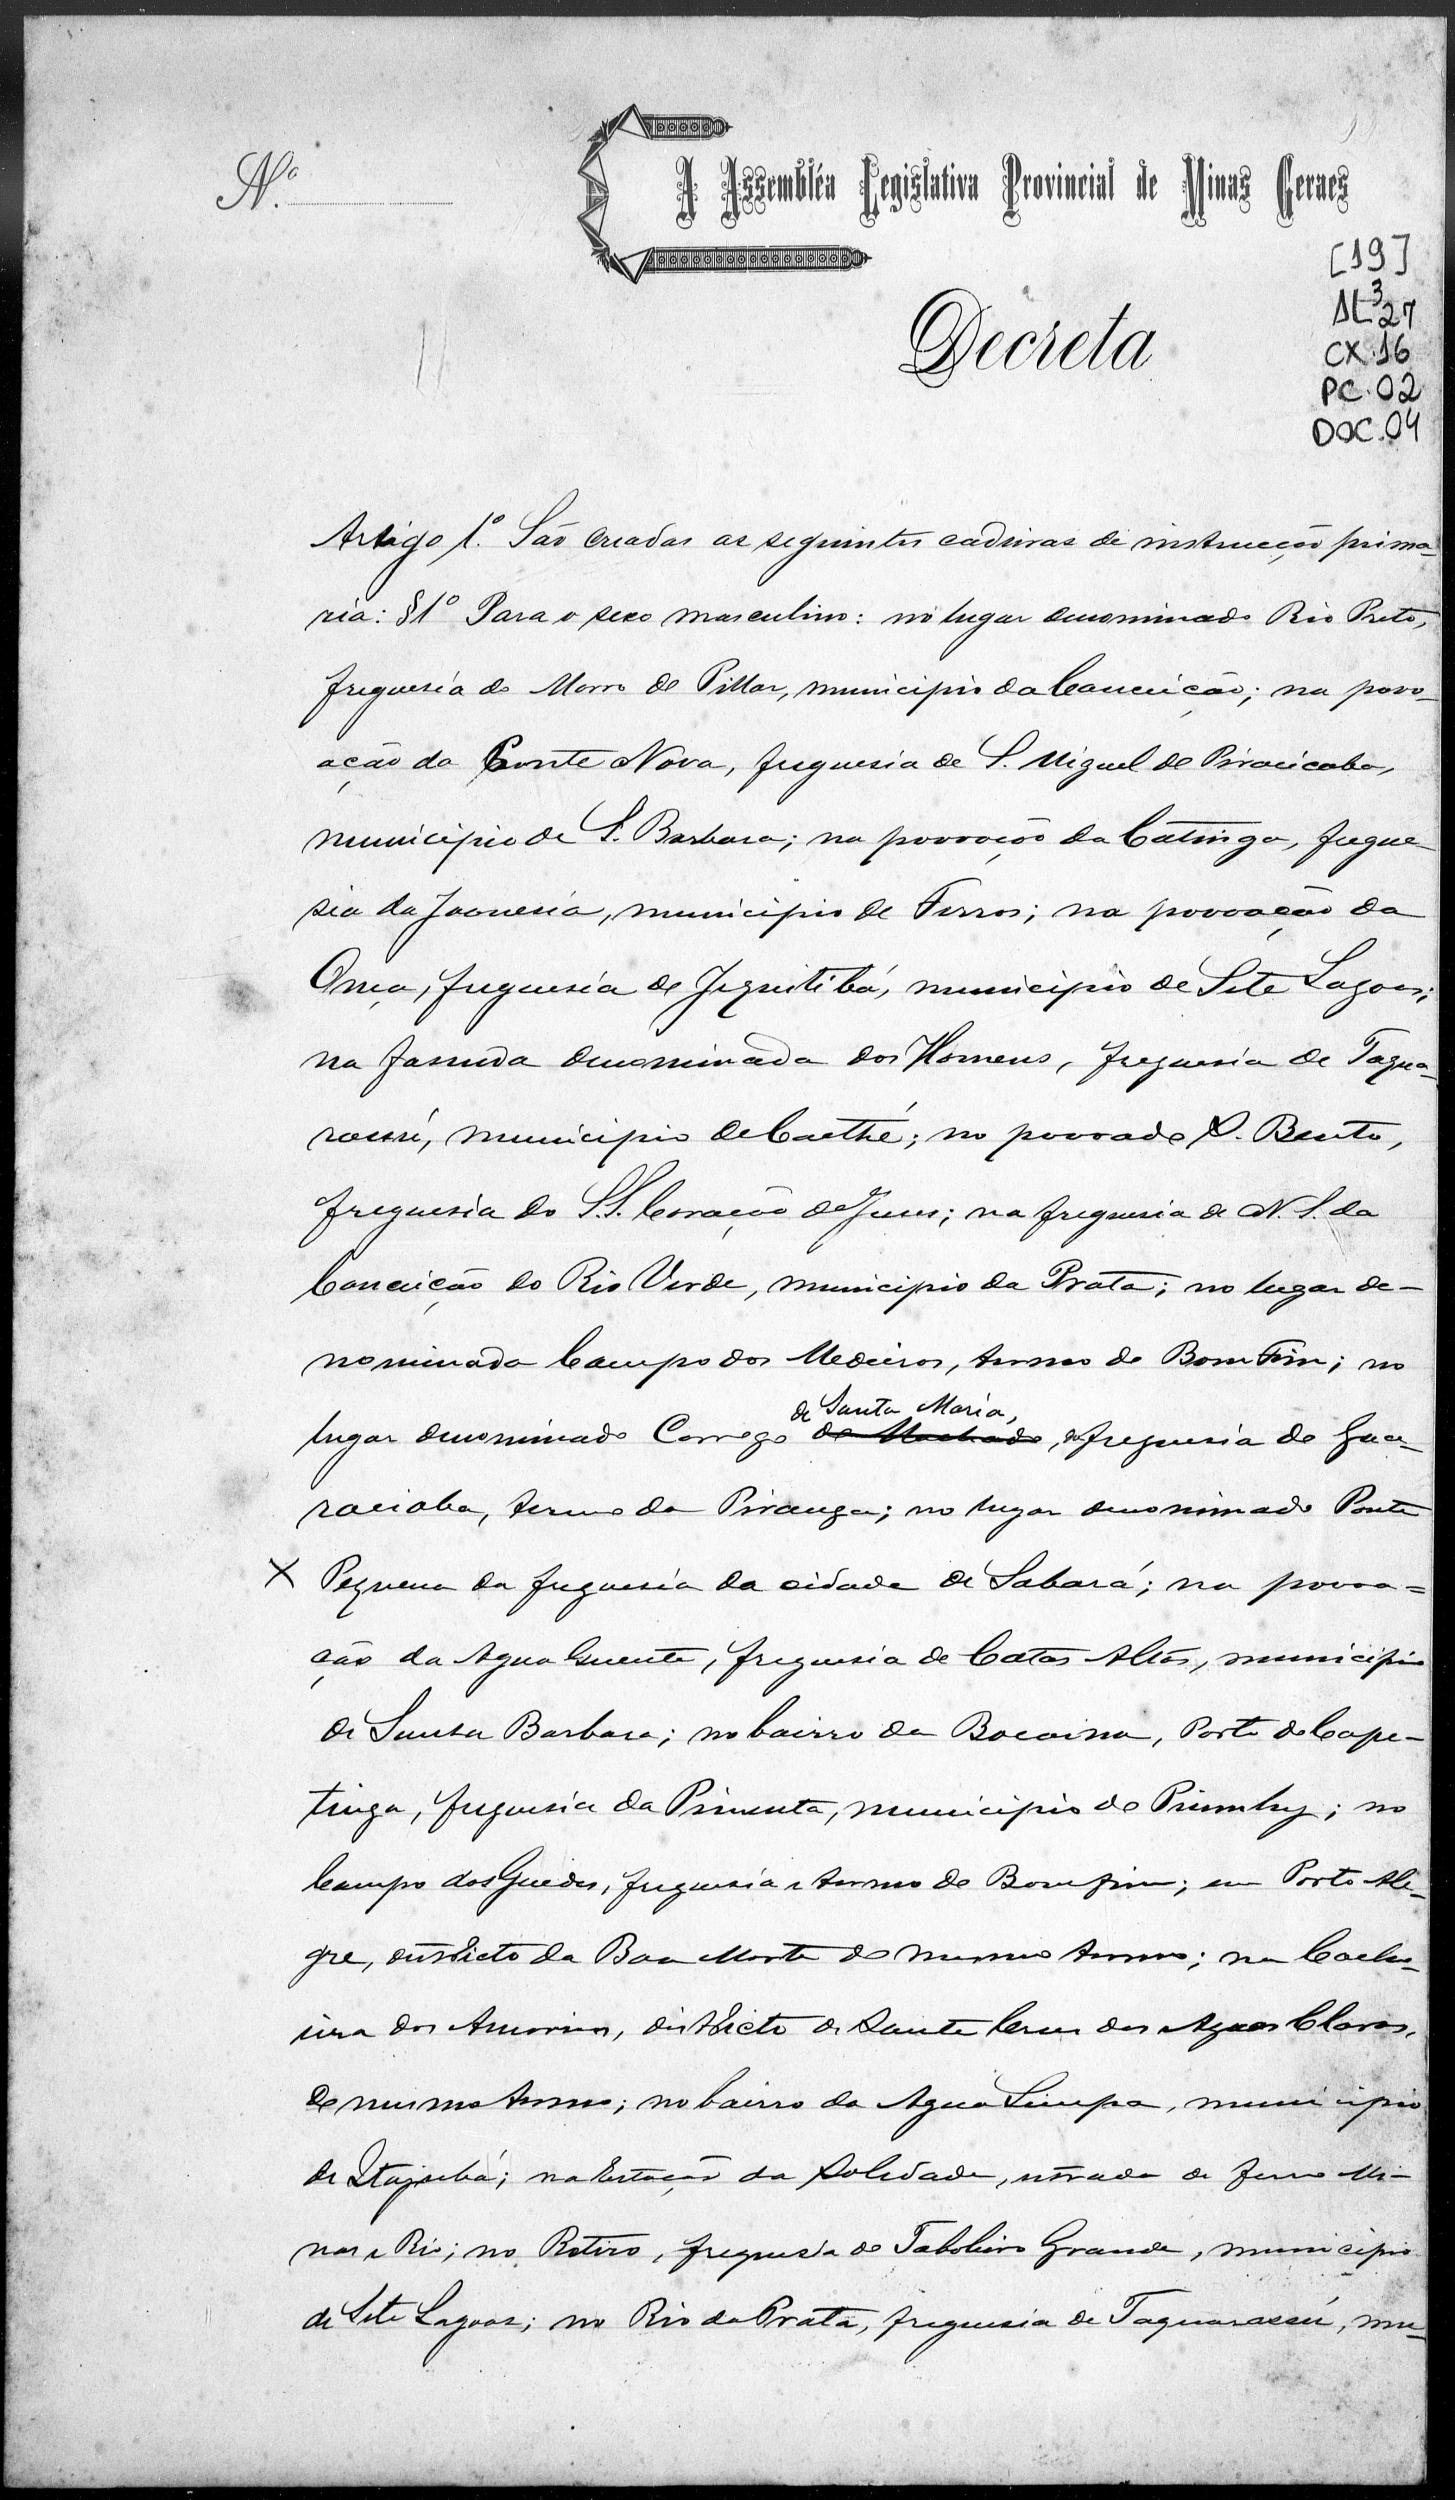 Nº
A Assembléa Legislativa Provincial de Minas Geraes
[19]
AL³27
CX.16
PC.02
DOC.04
Decreta
Artigo 1.º São creadas as seguintes cadeiras de instrucção prima-
ria: §1º Para o sexo masculino: no lugar denominado Rio Preto,
freguesia do Morro do Pillar, municipio da Conceição; na povo-
ação da Ponte Nova, freguesia de S. Miguel de Piracicaba,
municipio de S. Barbara; na povoação da Catinga, fregue-
sia da Joanesia, municipio de Ferros; na povoação da
Onça, freguesia de Jequitibá, municipio de Sete Lagoas;
na fasenda denominada dos Homens, freguesia de Taqua-
rassú, municipio de Caethé; no povoado S. Bento,
freguesia do S.S. Coração de Jesus; na freguesia de N. S. da
Conceição do Rio Verde, municipio da Prata; no lugar de-
nominado Campo dos Medeiros, termo de Bomfim; no
lugar denominado Corrego de Santa Maria, da freguesia de Gua-
raciaba, termo da Piranga; no lugar denominado Ponte
X Pequena da freguesia da cidade de Sabará; na povoa=
ção da Agua Quente, freguesia de Catas Altas, municipio
de Santa Barbara; no bairro da Bocaina, Porto do Cape-
tinga, freguesia da Pimenta, municipio de Piumhy; no
Campo dos Guedes, freguesia e termo de Bomfim; em Porto Ale-
gre, districto da Boa Morte do mesmo termo; na Cacho-
eira dos Amorins, districto de Santa Cruz das Aguas Claras,
do mesmo termo; no bairro da Agua Limpa, municipio
de Itajubá; na Estação da Soledade, estrada de ferro Mi-
nas e Rio; no Retiro, freguesia do Taboleiro Grande, municipio
de Sete Lagoas; no Rio da Prata, freguesia de Taquarassú, mu-